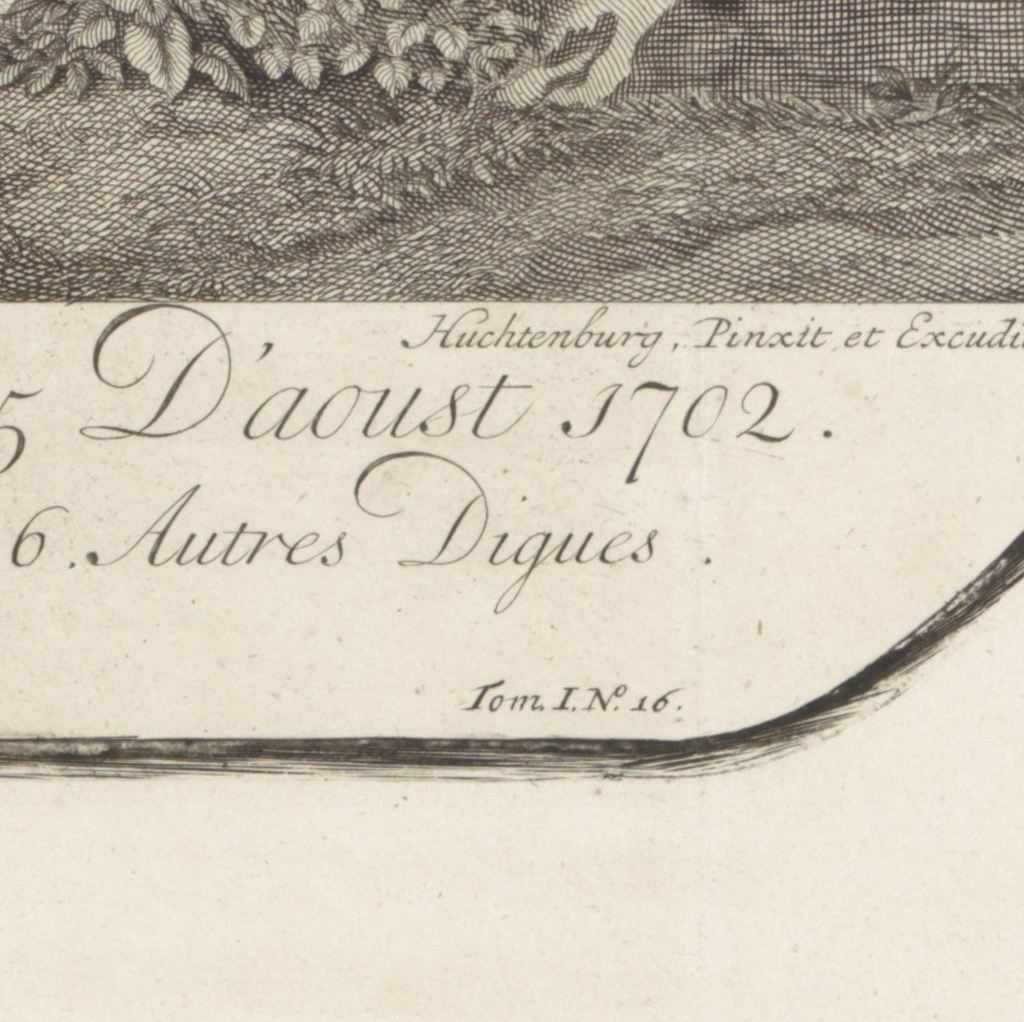 Huchtenburg, Pinxit et Excudit
5 D'aoust 1702.
6. Autres Digues.
Tom. I. No. 16.